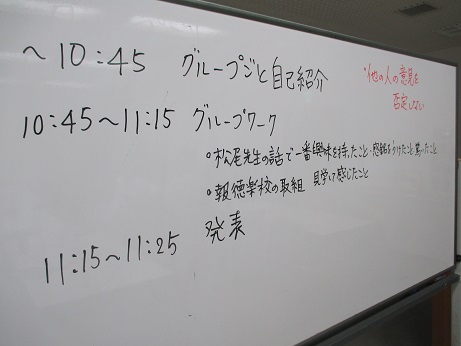 ～10:45 グループごと自己紹介
・他の人の意見を
否定しない
10:45～11:15 グループワーク
・松尾先生の話で一番興味を持ったこと、感銘をうけたこと、驚いたこと
・報徳学校の取組 見学して感じたこと
11:15～11:25 発表